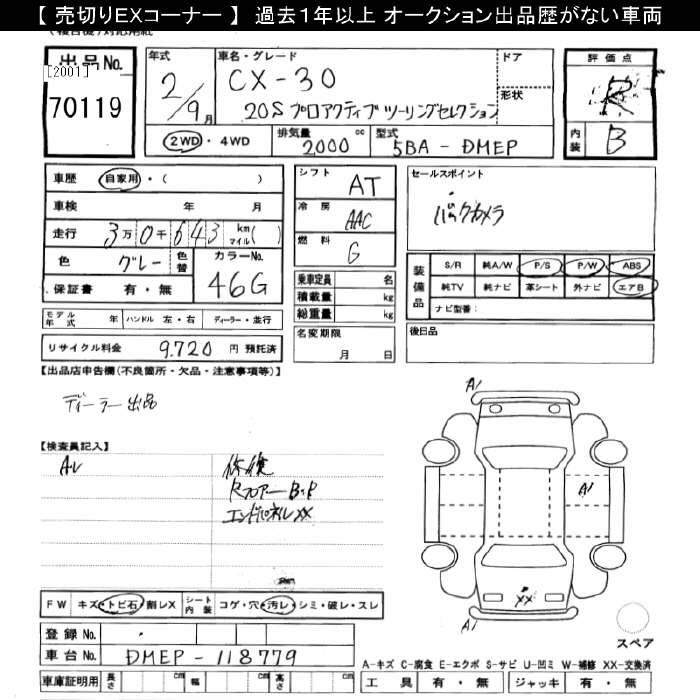 【 売切りEXコーナー 】 過去１年以上 オークション出品歴がない車両
出品No.
[2001]
70119
年式
2/9月
車名・グレード
CX-30
20S プロアクティブ ツーリングセレクション
ドア
形状
評価点
R
内装
B
2WD・4WD
排気量
2000 cc
型式
5BA - DMEP
車歴
自家用・( )
車検 年 月
走行 3万0千643 km マイル( )
色 グレー 色替
カラーNo.
46G
保証書 有・無
シフト AT
冷房 AAC
燃料 G
乗車定員 名
積載量 kg
総重量 kg
セールスポイント
バックカメラ
装備品
S/R 純A/W P/S P/W ABS
純TV 純ナビ 革シート 外ナビ エアB
ナビ型番:
モデル年式 年
ハンドル 左・右
ディーラー・並行
リサイクル料金 9.720 円 預託済
名変期限
月 日
後日品
【出品店申告欄(不良箇所・欠品・注意事項等)】
ディーラー出品
【検査員記入】
修復
Rフロアー
エンドパネルXX
A1
A1
XX
A1
FW キズ・トビ石・割レX
シート内装 コゲ・穴・汚レ・シミ・破レ・スレ
登録 No.
車台 No. DMEP - 118779
車庫証明用 長さ cm 幅 cm 高さ cm
スペア
A-キズ C-腐食 E-エクボ S-サビ U-凹ミ W-補修 XX-交換済
工具 有・無 ジャッキ 有・無